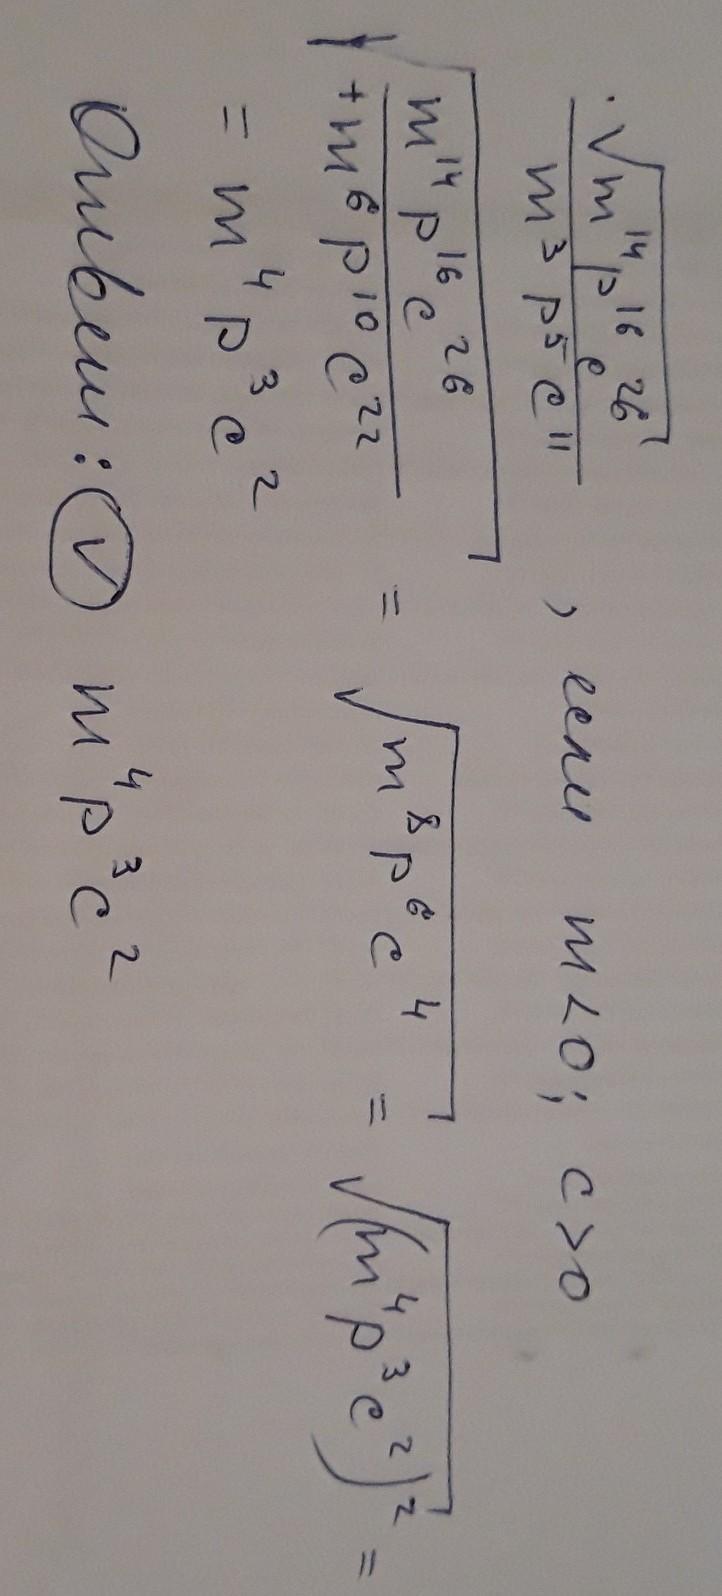 · √(m¹⁴p¹⁶c²⁶) / (m³p⁵c¹¹) , если m<0; c>0
√(m¹⁴p¹⁶c²⁶ / +m⁶p¹⁰c²²) = √(m⁸p⁶c⁴) = √((m⁴p³c²)²) =
= m⁴p³c²
Ответ: √ m⁴p³c²